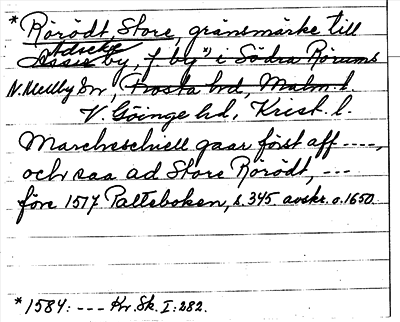 * Rörödt, Store, gränsmärke till
Adseke
Assers by, f. by" i Södra Rörums
N. Mellby sn Frosta hrd, Malm. l.
V. Göinge hd, Krist. l.
Marcheschiell gaar först aff ----,
och saa ad Store Rörödt, ---
före 1517 Palteboken, s. 345 avskr. o. 1650.
* 1584: --- Kr. Sk. I: 282.